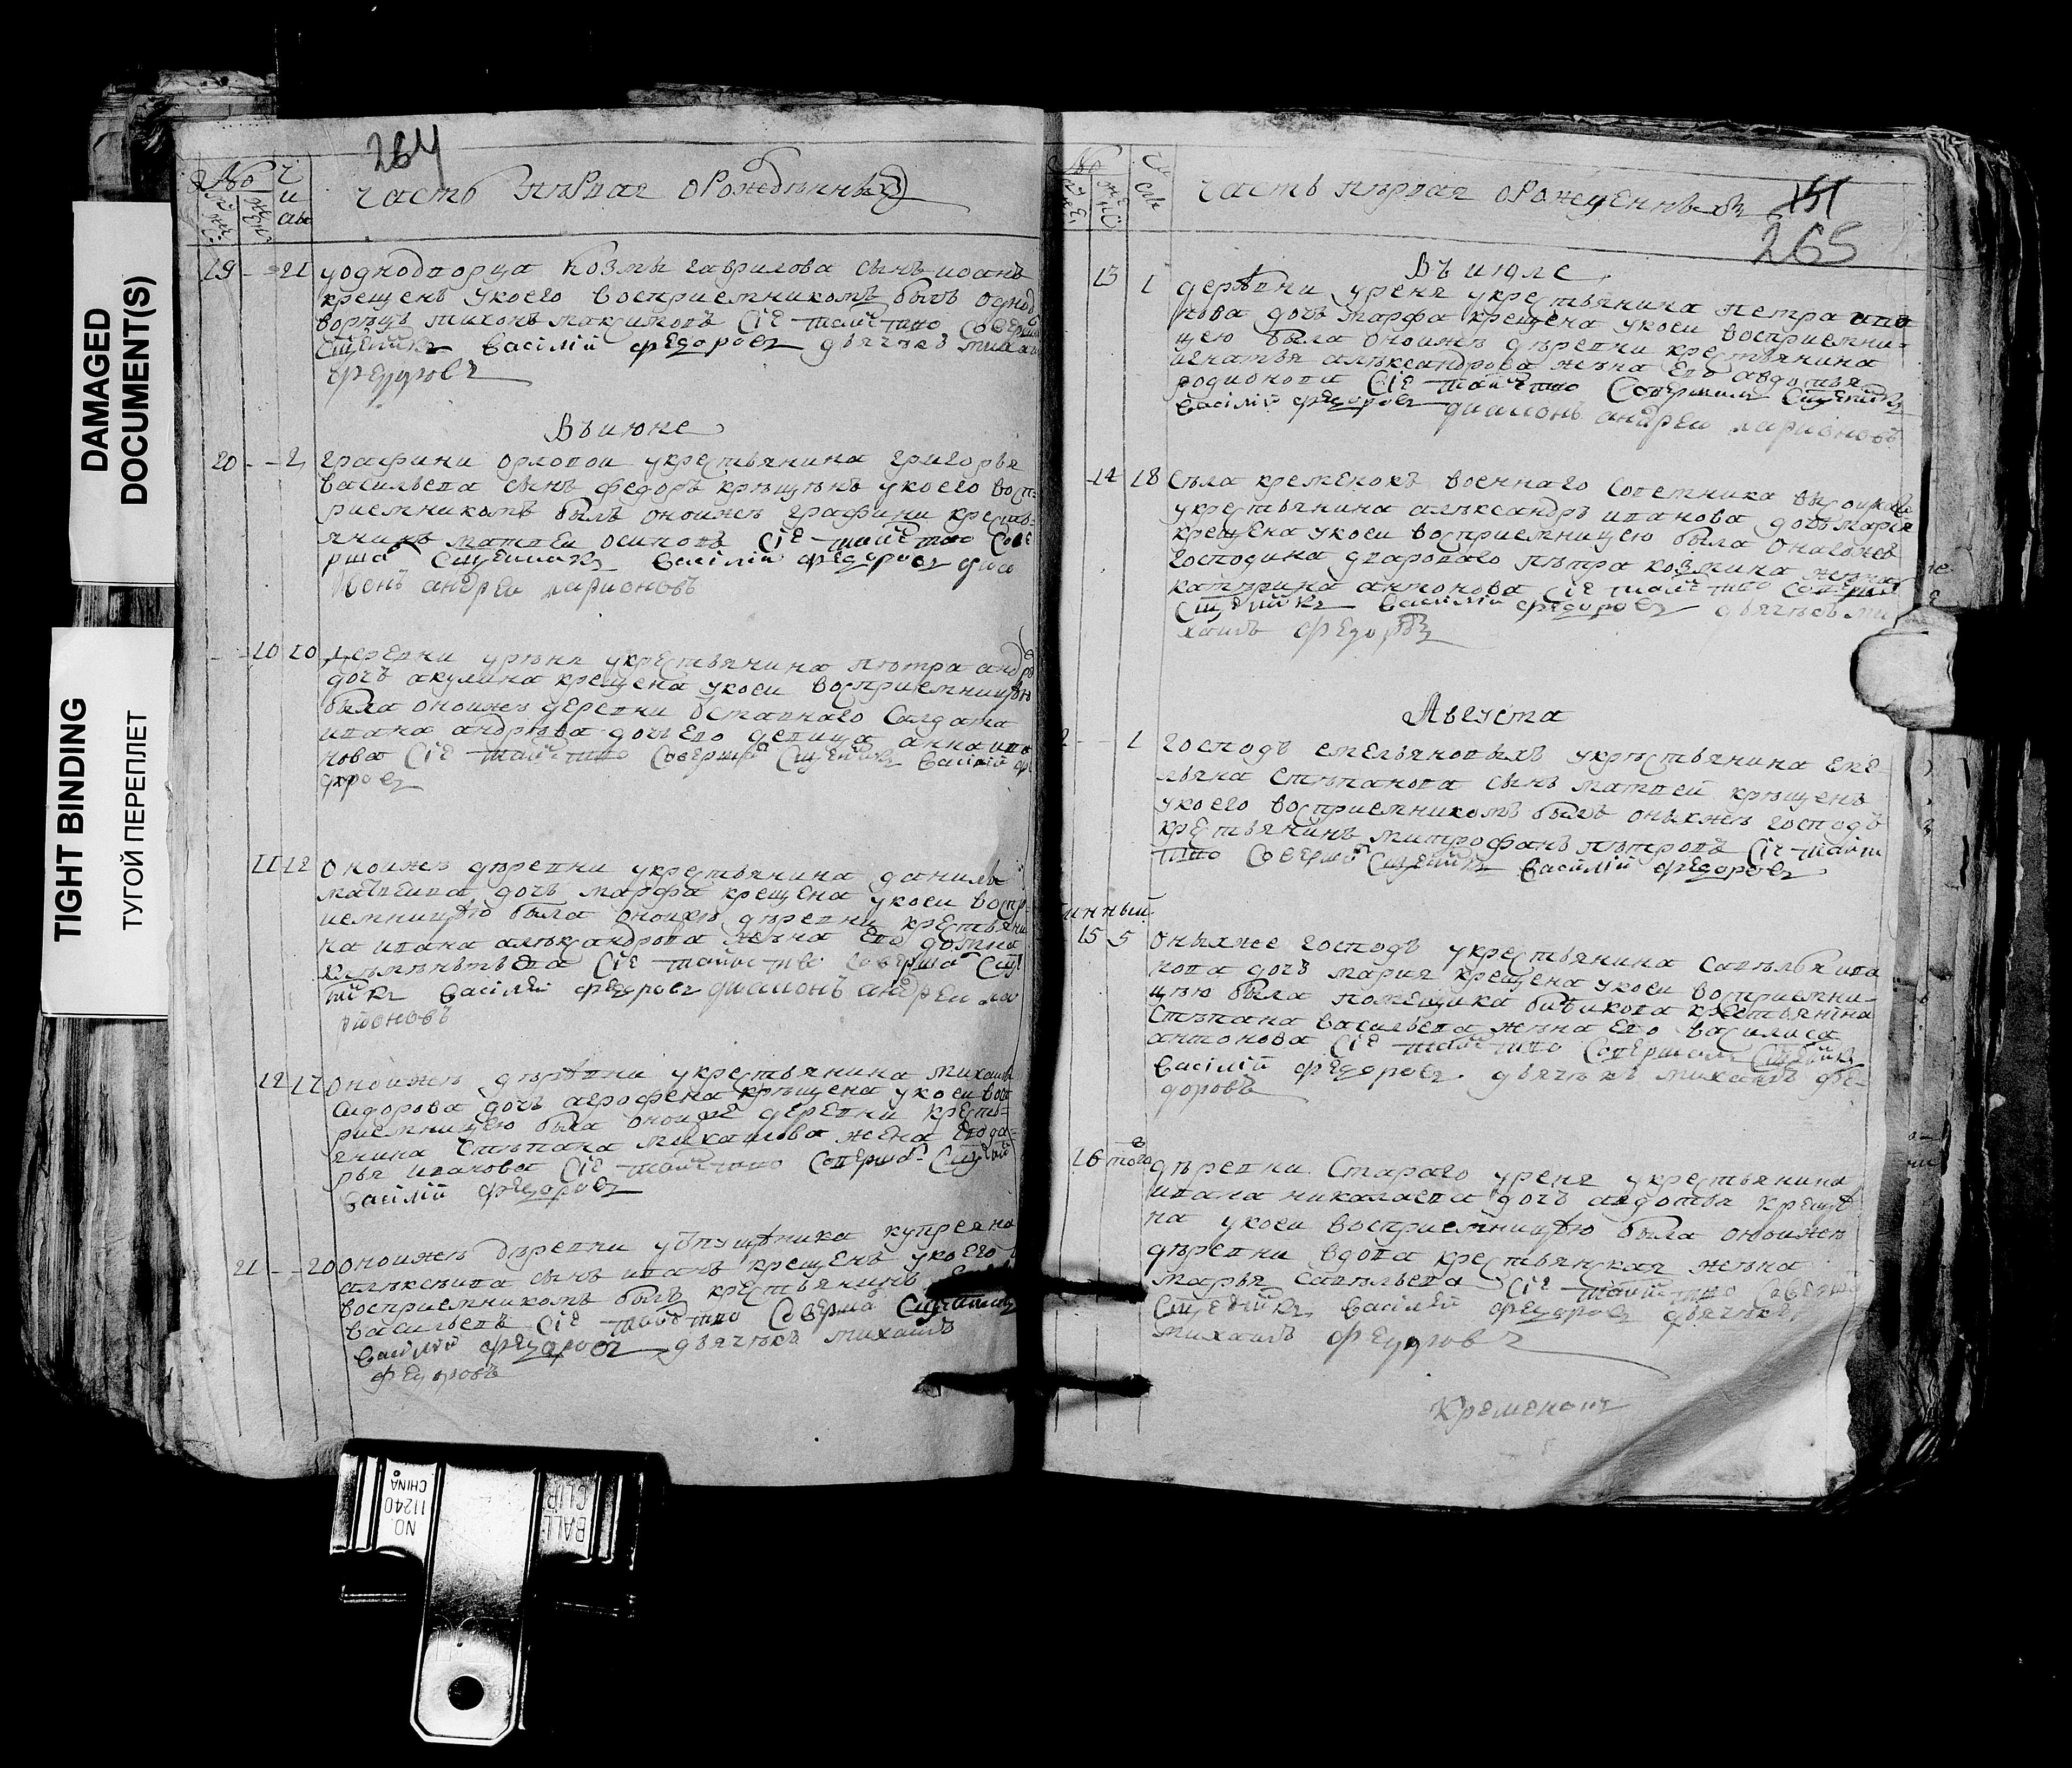 DAMAGED
DOCUMENT(S)
TIGHT BINDING
ТУГОЙ ПЕРЕПЛЕТ
264
№
чи
сло
часть первая орождѣнныхъ
19 21 уоднодворца козмы гаврилова сынъ иоанъ
крещенъ укоего восприемникомъ былъ однод
ворецъ тихонъ максимовъ сiе таинство совершa
Священникъ василiй федоровъ дьячекъ михаил
федоровъ
Въ июне
20 2 графини орловои укрестьянина григорья
васильева сынъ федоръ крѣщенъ укоего восп-
риемникомъ былъ оноижъ графини кресть-
янинъ матвеи осиповъ сiе таинство сове
рша Священникъ василiй федоровъ диа
конъ андреи ларионовъ
10 10 деревни урѣня укрестьянина пѣтра анд
дочь акулина крещена укоеи восприемницѣю
была оноижъ деревни оставнаго салдата
ивана андрѣва дочь Его девица анна ива
нова сiе таинство соверши Священникъ василiй фе
доровъ
11 12 Оноижъ дѣревни укрестьянина данила
матвеива дочь марфа крещена укоеи воспр
иемницѣю была оноижъ дѣревни крестьяни
на ивана алѣксандрова жѣна Его домна
клѣмѣнтьева сiе таинство соверша Свящ
нникъ василiй федоровъ диаконъ андреи ла
рионовъ
12 17 Оноижъ дѣрѣвни укрестьянина михаила
сидорова дочь агрофена крѣщена укоеи восп
риемницею была оноиже деревни кресть-
янина стѣпана михаилова жена Его да-
рья иванова сiе таинство соверша Священни
василiй федоровъ
21 20 оноижъ дѣревни купреяна
алѣксеива сынъ иванъ крещенъ укоего
восприемникомъ былъ крестьянинъ
васильевъ сiе таинство соверша Священникъ
василiй федоровъ дьячекъ михаилъ
федоровъ
№
чи
сло
часть пѣрвая орожденныхъ
151
265
Въ июле
13 1 дерѣвни уреня укрестьянина петра ива
нова дочь марфа крещена укоеи восприемни-
цею была оноижъ дѣревни крестьянина
игнатья алѣксандрова жѣна Его авдотья
родионова сiе таинство совершилъ Священникъ
василiй федоровъ диаконъ андреи ларионовъ
14 18 Сѣла кременокъ военнаго советника
укрестьянина алѣксандръ иванова дочь марья
крещена укоеи восприемницею была онагожъ
господина двароваго пѣтра козмина жѣна
катѣрина антонова сiе таинство соверши
Священникъ василiй федоровъ дьячекъ ми
хаилъ федоровъ
Августа
2 1 господъ емельяновыхъ укрѣстьянина Еме-
льяна стѣпанова сынъ матвей крѣщенъ
укоего восприемникомъ былъ оныхжъ господъ
крестьянинъ митрофанъ пѣтровъ сiе таин
ство соверши Священникъ василiй федоровъ
15 5 Оныхже господъ укрестьянина савѣлья ива
нова дочь мария крещена укоеи восприемни-
цѣю была помѣщика бивикова крестьянина
стѣпана васильева жѣна Его василиса
антонова сiе таинство совершилъ Священникъ
василiй федоровъ дьячекъ михаилъ фе-
доровъ
16 того дѣревни Стараго уреня укрестьянина
ивана николаева дочь авдотья крещѣ
на укоеи восприемницѣю была оноижъ
дѣревни вдова крестьянская жѣна
марья савѣльева сiе таинство соверши
Священникъ василiй федоровъ дьячекъ
михаилъ федоровъ
NO.
11240
CHINA
BALL
CLIP